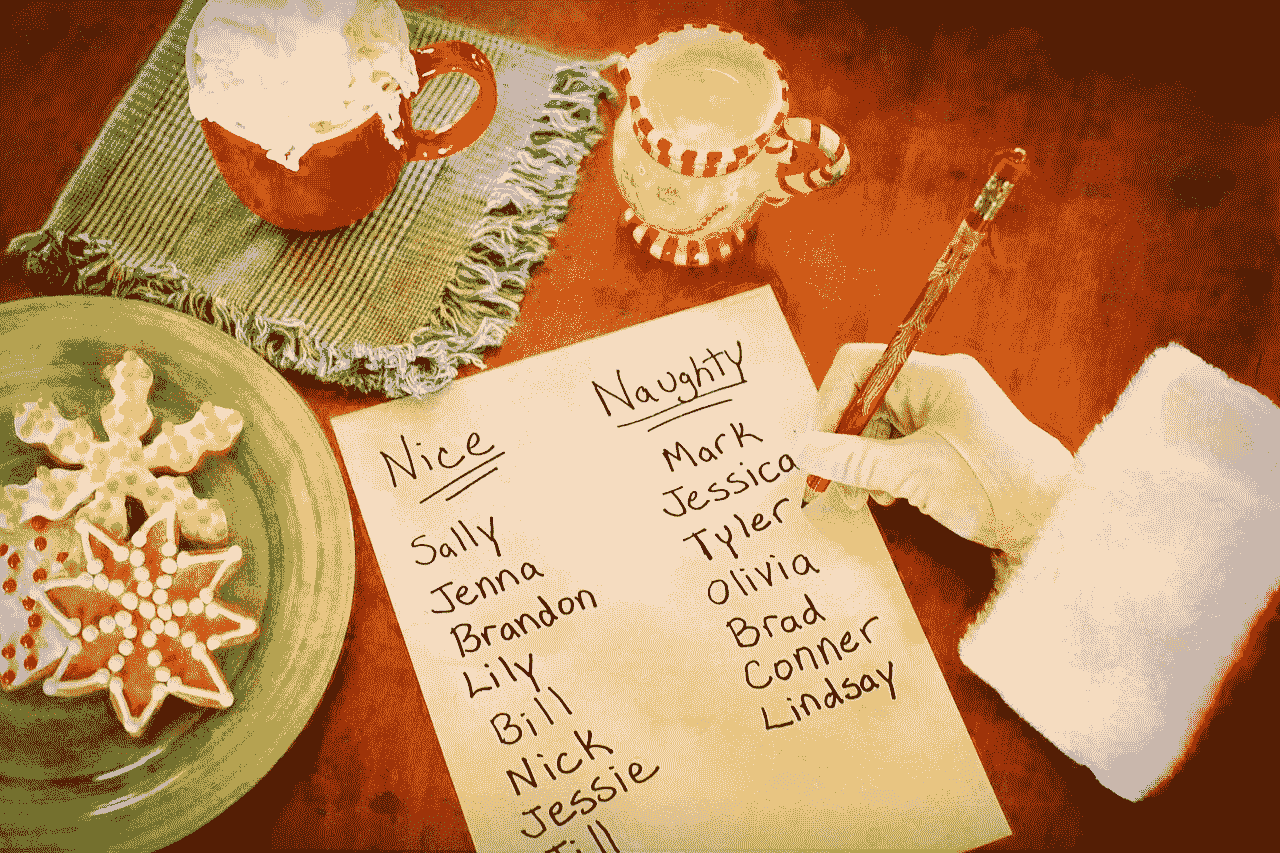 Nice
Sally
Jenna
Brandon
Lily
Bill
Nick
Jessie
Jill
Naughty
Mark
Jessica
Tyler
Olivia
Brad
Conner
Lindsay